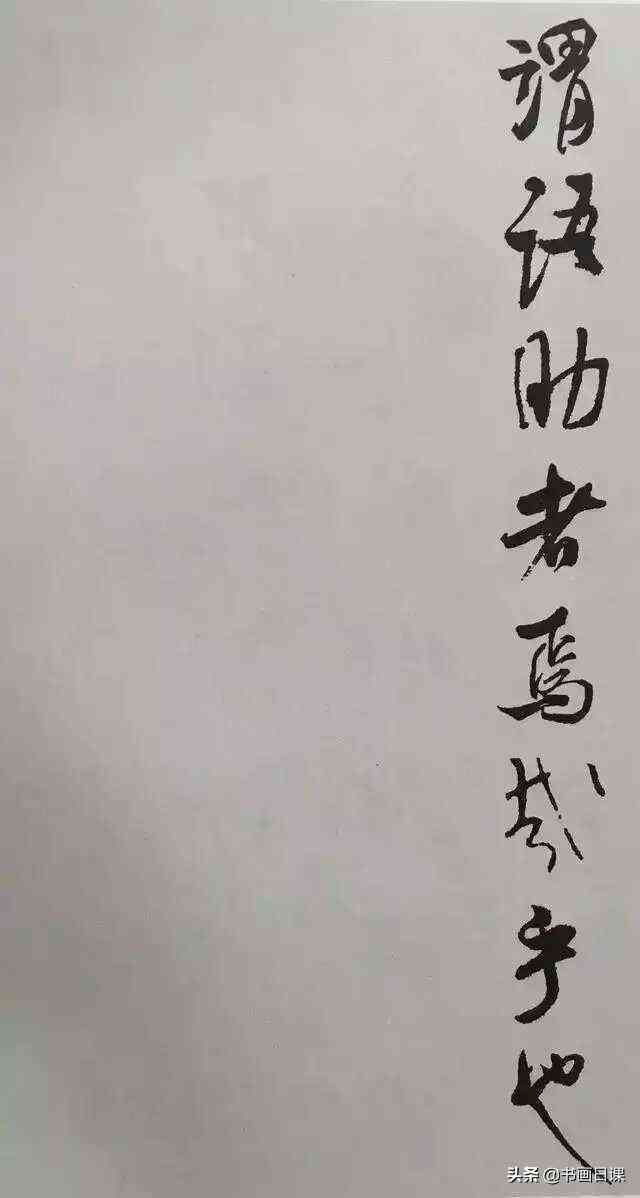 謂語助者焉哉乎也
头条 @书画日课